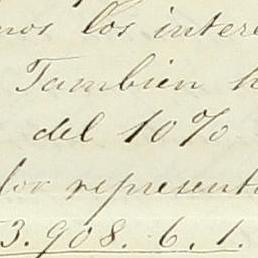 los intere
Tambien h
del 10%
representa
3.908. 6. 1.